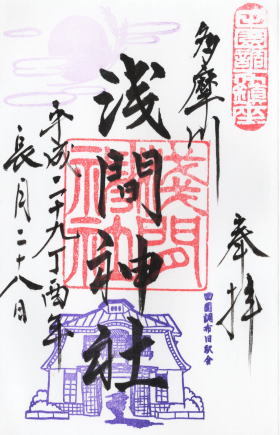 田園調布鎮座
奉拝
多摩川
浅間神社
淺間
神社
田園調布旧駅舎
平成二十九丁酉年
長月二十八日